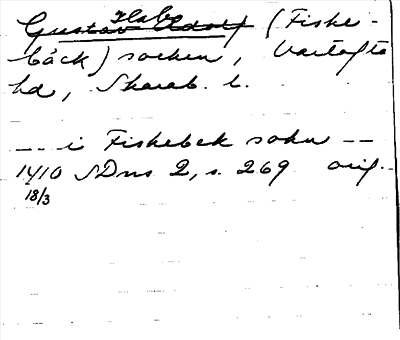 Habo
Gustav Adolf (Fiske-
bäck) socken, Vartofta
hd, Skarab. l.
-- i Fiskebek sokn --
1410 SDns 2, s. 269 orig.
18/3